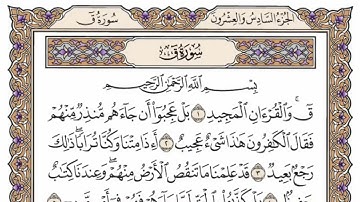 سُورَةُ قٓ الجُزْءُ السَّادِسُ وَالعِشْرُونَ
سُورَةُ قٓ
بِسْمِ ٱللَّهِ ٱلرَّحْمَٰنِ ٱلرَّحِيمِ
قٓۚ وَٱلْقُرْءَانِ ٱلْمَجِيدِ ١ بَلْ عَجِبُوٓا۟ أَن جَآءَهُم مُّنذِرٌ مِّنْهُمْ
فَقَالَ ٱلْكَٰفِرُونَ هَٰذَا شَىْءٌ عَجِيبٌ ٢ أَءِذَا مِتْنَا وَكُنَّا تُرَابًاۖ ذَٰلِكَ
رَجْعٌۢ بَعِيدٌ ٣ قَدْ عَلِمْنَا مَا تَنقُصُ ٱلْأَرْضُ مِنْهُمْۖ وَعِندَنَا كِتَٰبٌ